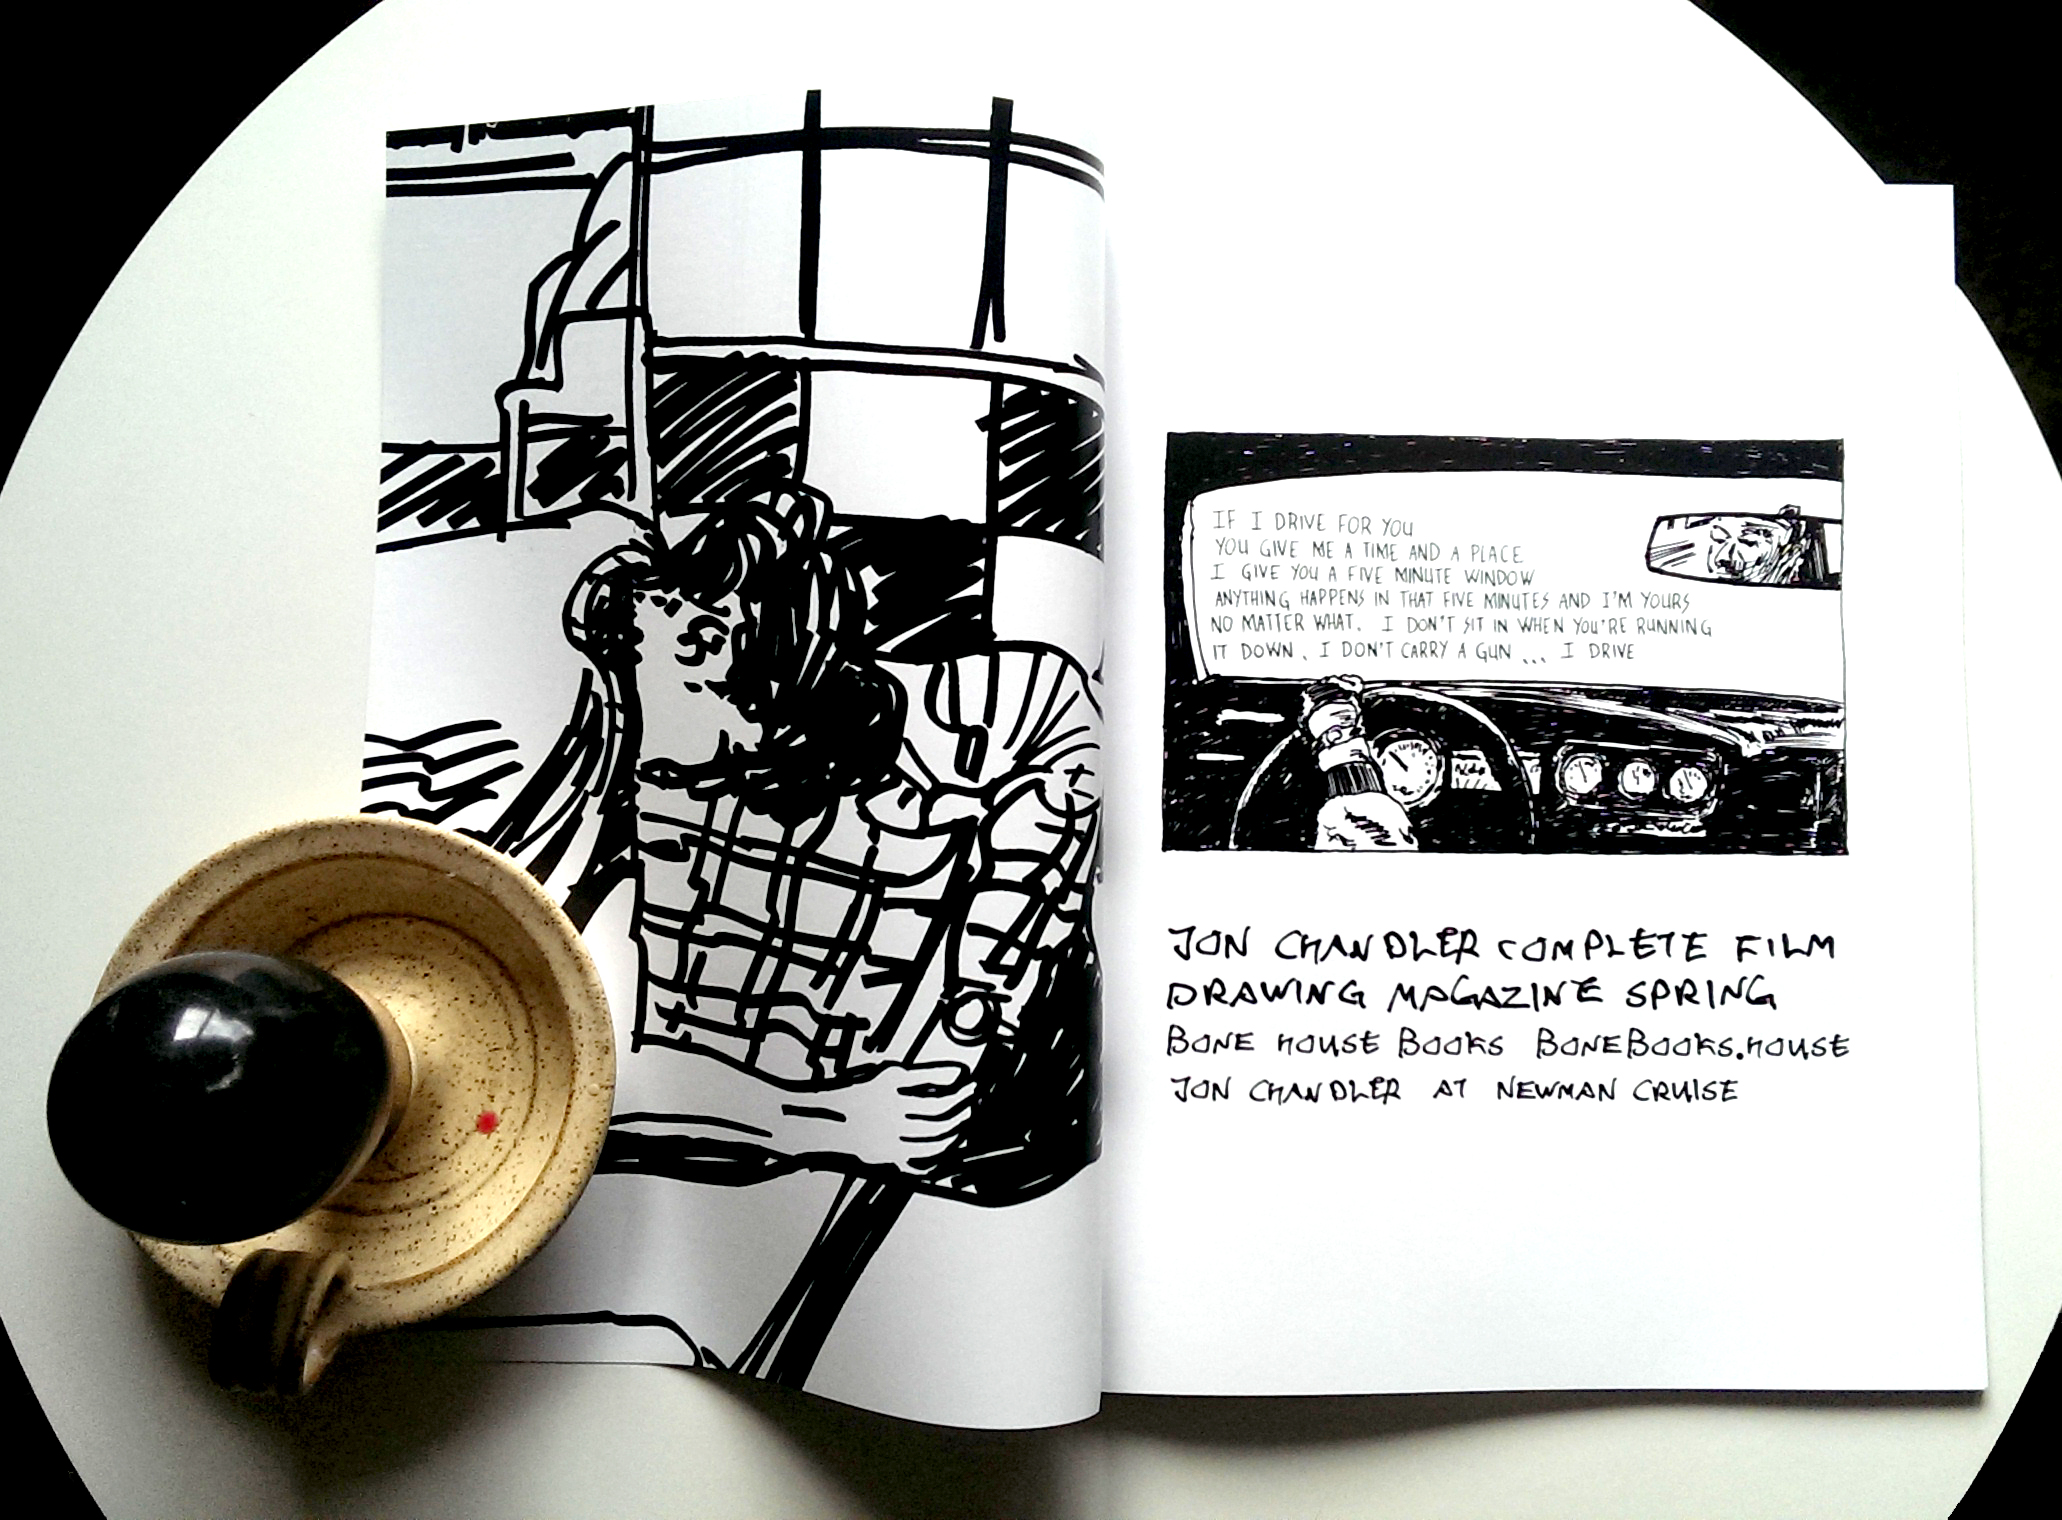 IF I DRIVE FOR YOU
YOU GIVE ME A TIME AND A PLACE
I GIVE YOU A FIVE MINUTE WINDOW
ANYTHING HAPPENS IN THAT FIVE MINUTES AND I'M YOURS
NO MATTER WHAT. I DON'T SIT IN WHEN YOU'RE RUNNING
IT DOWN. I DON'T CARRY A GUN ... I DRIVE
JON CHANDLER COMPLETE FILM
DRAWING MAGAZINE SPRING
BONE HOUSE BOOKS BONEBOOKS.HOUSE
JON CHANDLER AT NEWMAN CRUISE